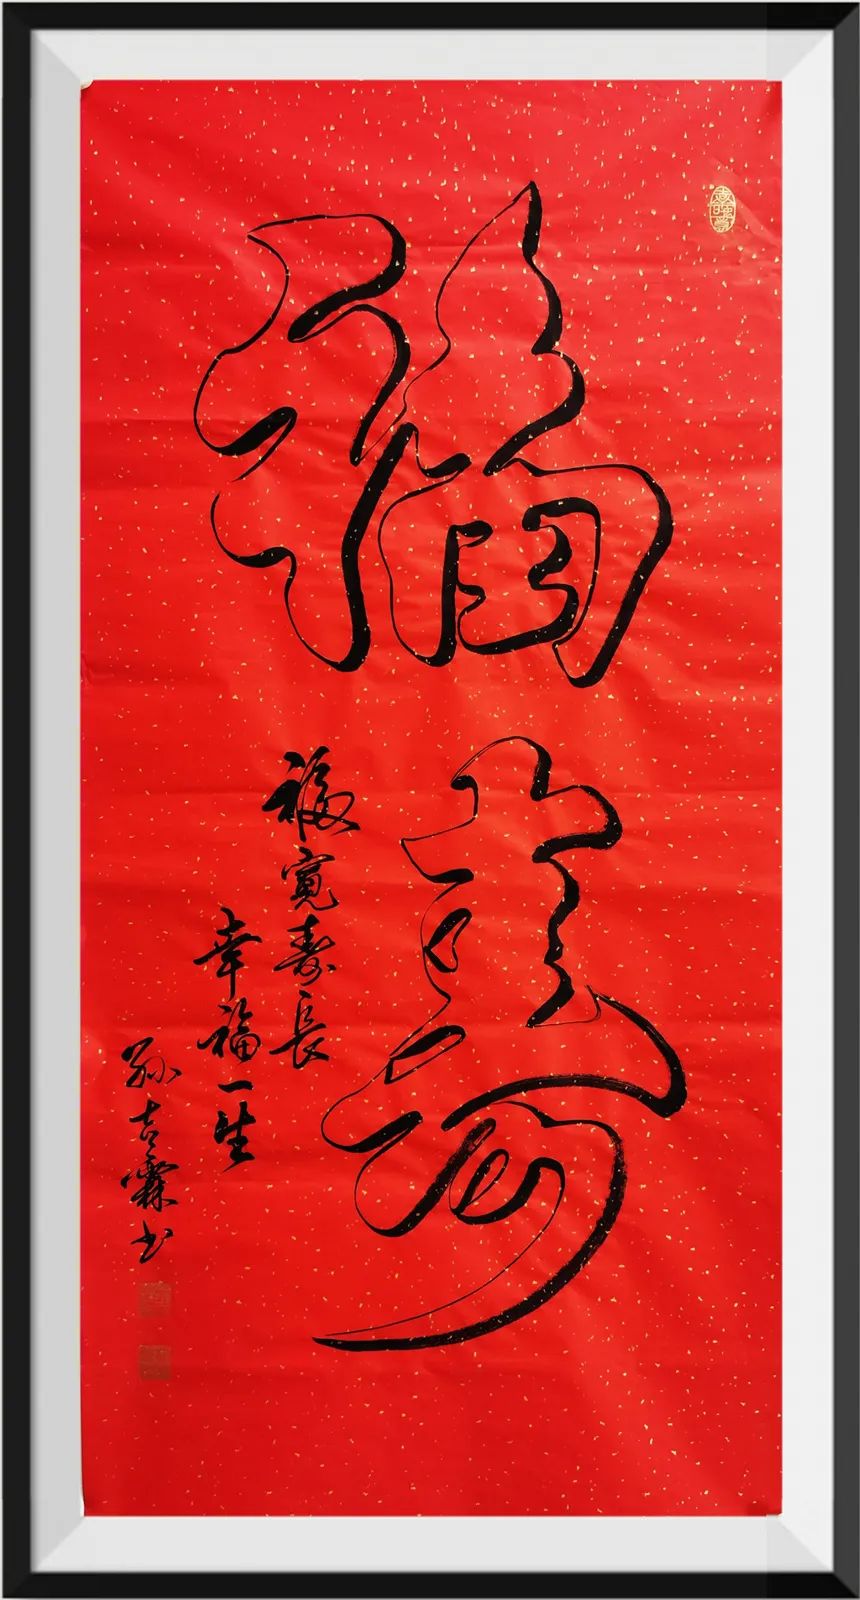 福壽
福寬壽長
幸福一生
孙吉霖书